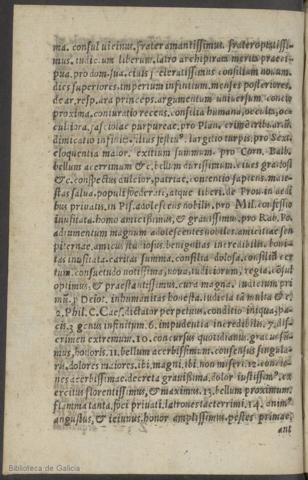 ma. consul uicinus, frater amantissimus. frater optatissi-
mus. iudicum liberum, latro archipirata. merita præci-
pua. pro dom. sua. consilium nouum.
dies superiores. imperium infinitum, menses posteriores,
de ar. resp. ara princeps, argumentum uniuersum. conctio
proxima, coniuratio recens, consilia humana, occulta, oc-
cultiora, fasciolæ purpureæ, pro Plan. crimen
dimicatio infinita. largitio turpis, pro Sext.
eloquentia maior, exitium summum. pro Corn. Balb.
bellum acerrimum & c. bellum durissimum. ciues
& c. conspectus dulcior, patriæ, contentio sapiens. maie-
stas salua. populi fœderati, atque liberi. de Prouin. 
bus priuatis, in Pis. adolescens nobilis, pro Mil. confessio
inusitata. homo amicissimus, & grauissimus, pro Rab. Po.
adiumentum magnum adolescentes nobiles. amicitiæ sem
piternæ, amicus studiosus. benignitas incredibilis. boni-
tas inusitata. caritas summa, consilia dolosa, consilia cer
tum. consuetudo notissima, noua, iudiciorum, regia, consul
optimus, & præstantissimus. cura magna. iudicium pri
mū. p Deiot. inhumanitas honesta. iudicia tā multa & c.
2. Phil. C. Cæs. dictator perpetuus, conditio iniqua, pa-
cis. 3 genus infinitum. 6. impudentia incredibilis. 7. dis-
crimen extremum. 10. concursus quotidianus. gratus sūm
mus, honoris. 11. bellum acerbissimum. consensus singula-
ris. dolores maiores. ibi. magni. ibi. non miseri. 12. concio-
nes acerbissimæ. decreta grauissima. dolor iustissimꝰ. ex
ercitus florentissimus, & maximus. 13. bellum proximum.
flamma tanta. foci priuati. latrones teterrimi. 14. animꝰ
angustus, & ieiunus. honor amplissimus. pestes primæ.
ant
Biblioteca de Galicia